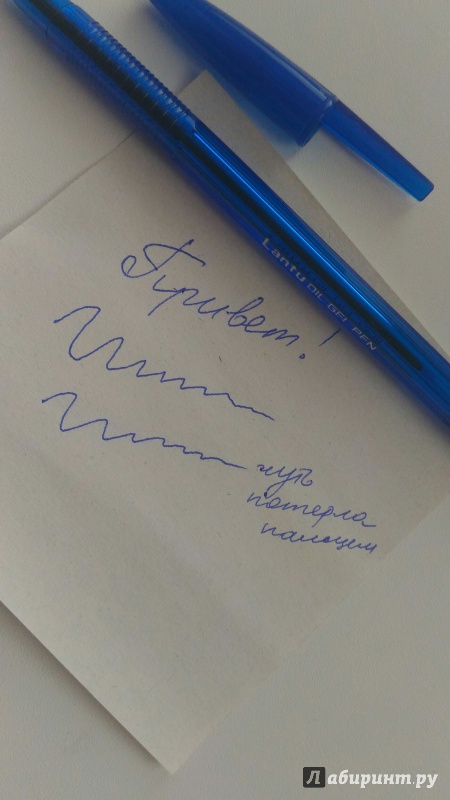 Lantu OIL GEL PEN
Привет!
чуть
потерла
пальцем
Лабиринт.ру